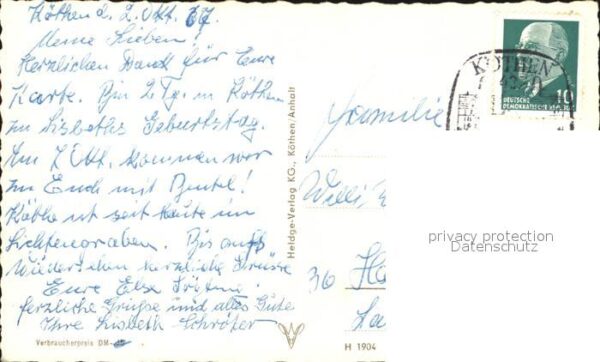 Köthen d. 2. Okt. 67
Meine Lieben!
Herzlichen Dank für Eure
Karte. Bin 2 Tg. in Köthen
zu Lisbeths Geburtstag.
Am 7. Okt. kommen wir
zu Euch mit
Käthe ist seit heute im
Bis aufs
Wiedersehen herzliche Grüsse
Eure Else
herzliche Grüsse und alles Gute
Ihre Lisbeth Schröter
Verbraucherpreis DM
Heldge-Verlag KG., Köthen/Anhalt
H 1904
KÖTHEN
DEUTSCHE
DEMOKRATISCHE REPUBLIK
10
Familie
Willi
36
privacy protection
Datenschutz